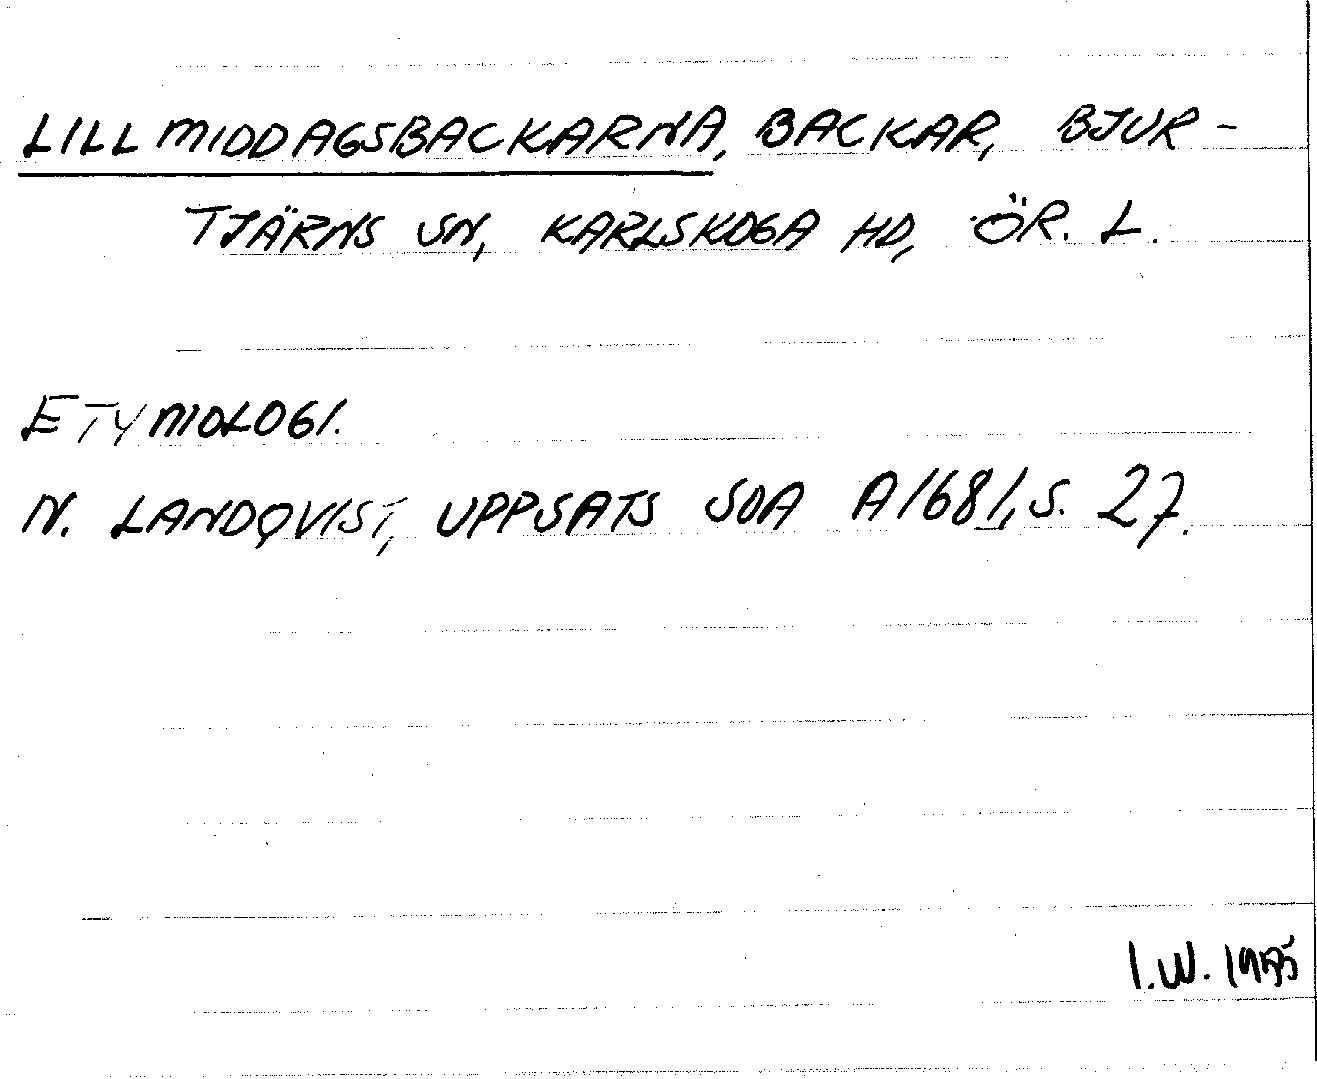 LILLMIDDAGSBACKARNA, BACKAR, BJUR-
TJÄRNS SN, KARLSKOGA HD, ÖR. L.
ETYMOLOGI.
N. LANDQVIST, UPPSATS SOA A1681, S. 27.
I.W. 1975